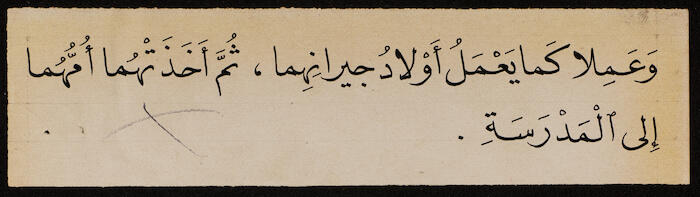 وَعَمِلا كَما يَعْمَلُ أَوْلادُ جيرانِهِما ، ثُمَّ أَخَذَتْهُما أُمُّهُما
إِلى ٱلْمَدْرَسَةِ .